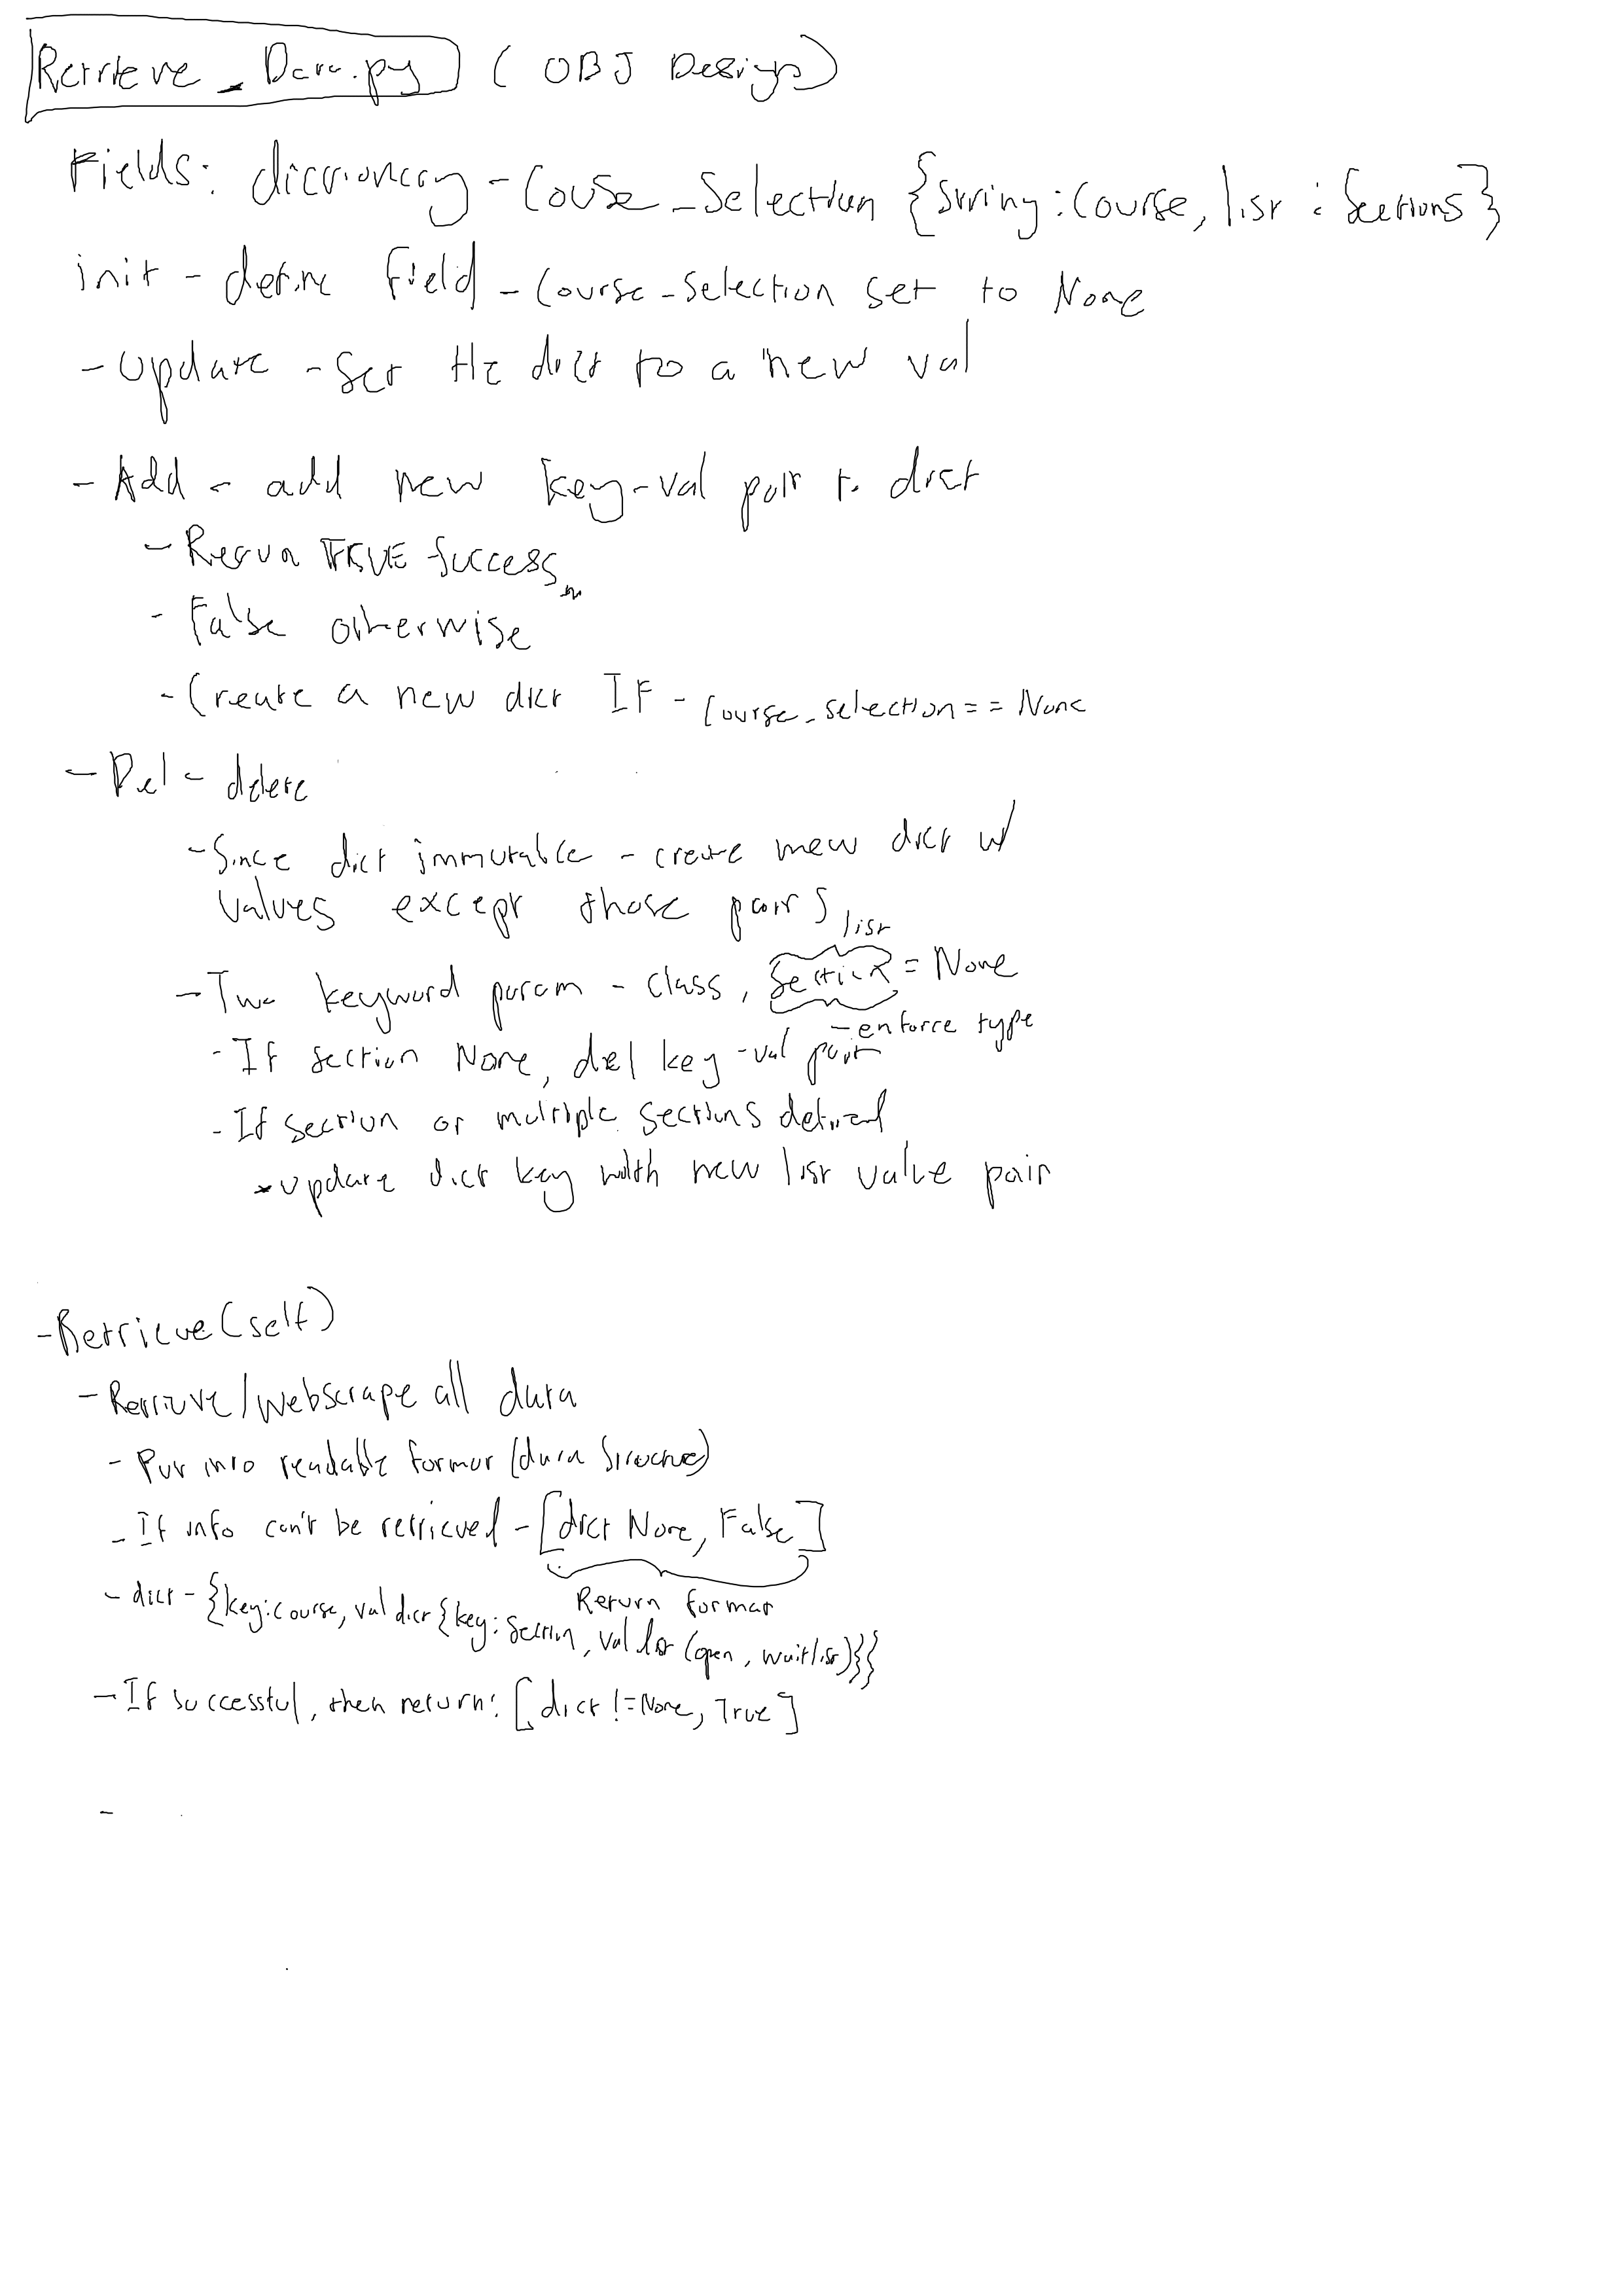 Retrieve_Data.py (OBJ Design)
Fields: dictionary - Couse_Selection {String: Course, list: Sections}
init - define field - Course_selection set to None
- Update - Set the dict to a new val
- Add - add new key-val pair to dict
- Return TRUE Success
- False otherwise
- Create a new dict IF - Course_selection == None
- Del - delete
- Since dict immutable - create new dict w/
values except those pairs
list
- Two keyword param - class, section = None
- enforce type
- If section None, del key-val pair
- If section or multiple sections defined
* update dict key with new list value pair
- Retrieve(self)
- Retrieve/Webscrape all data
- Put into readable format (data Structure)
- If info can't be retrieved - [dict None, False]
Return format
- dict - {key: course, val dict {key: Section, val list (open, waitlist)}}
- If successful, then return: [dict != None, True]
-